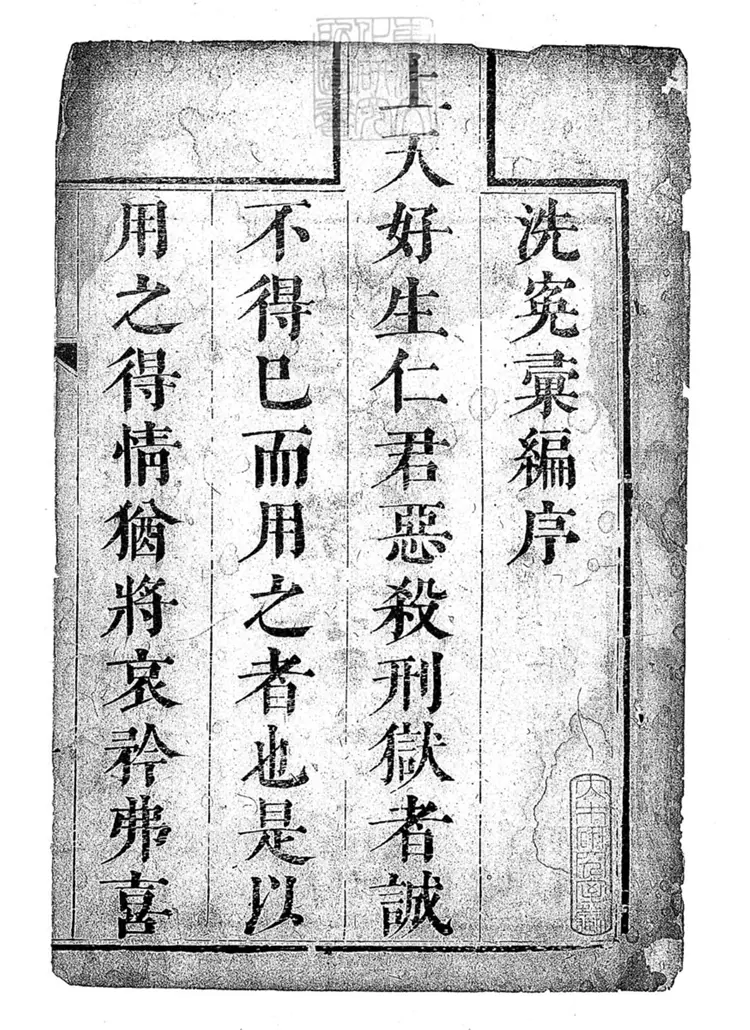 洗寃彙編序
上天好生仁君惡殺刑獄者誠
不得已而用之者也是以
用之得情猶將哀矜弗喜